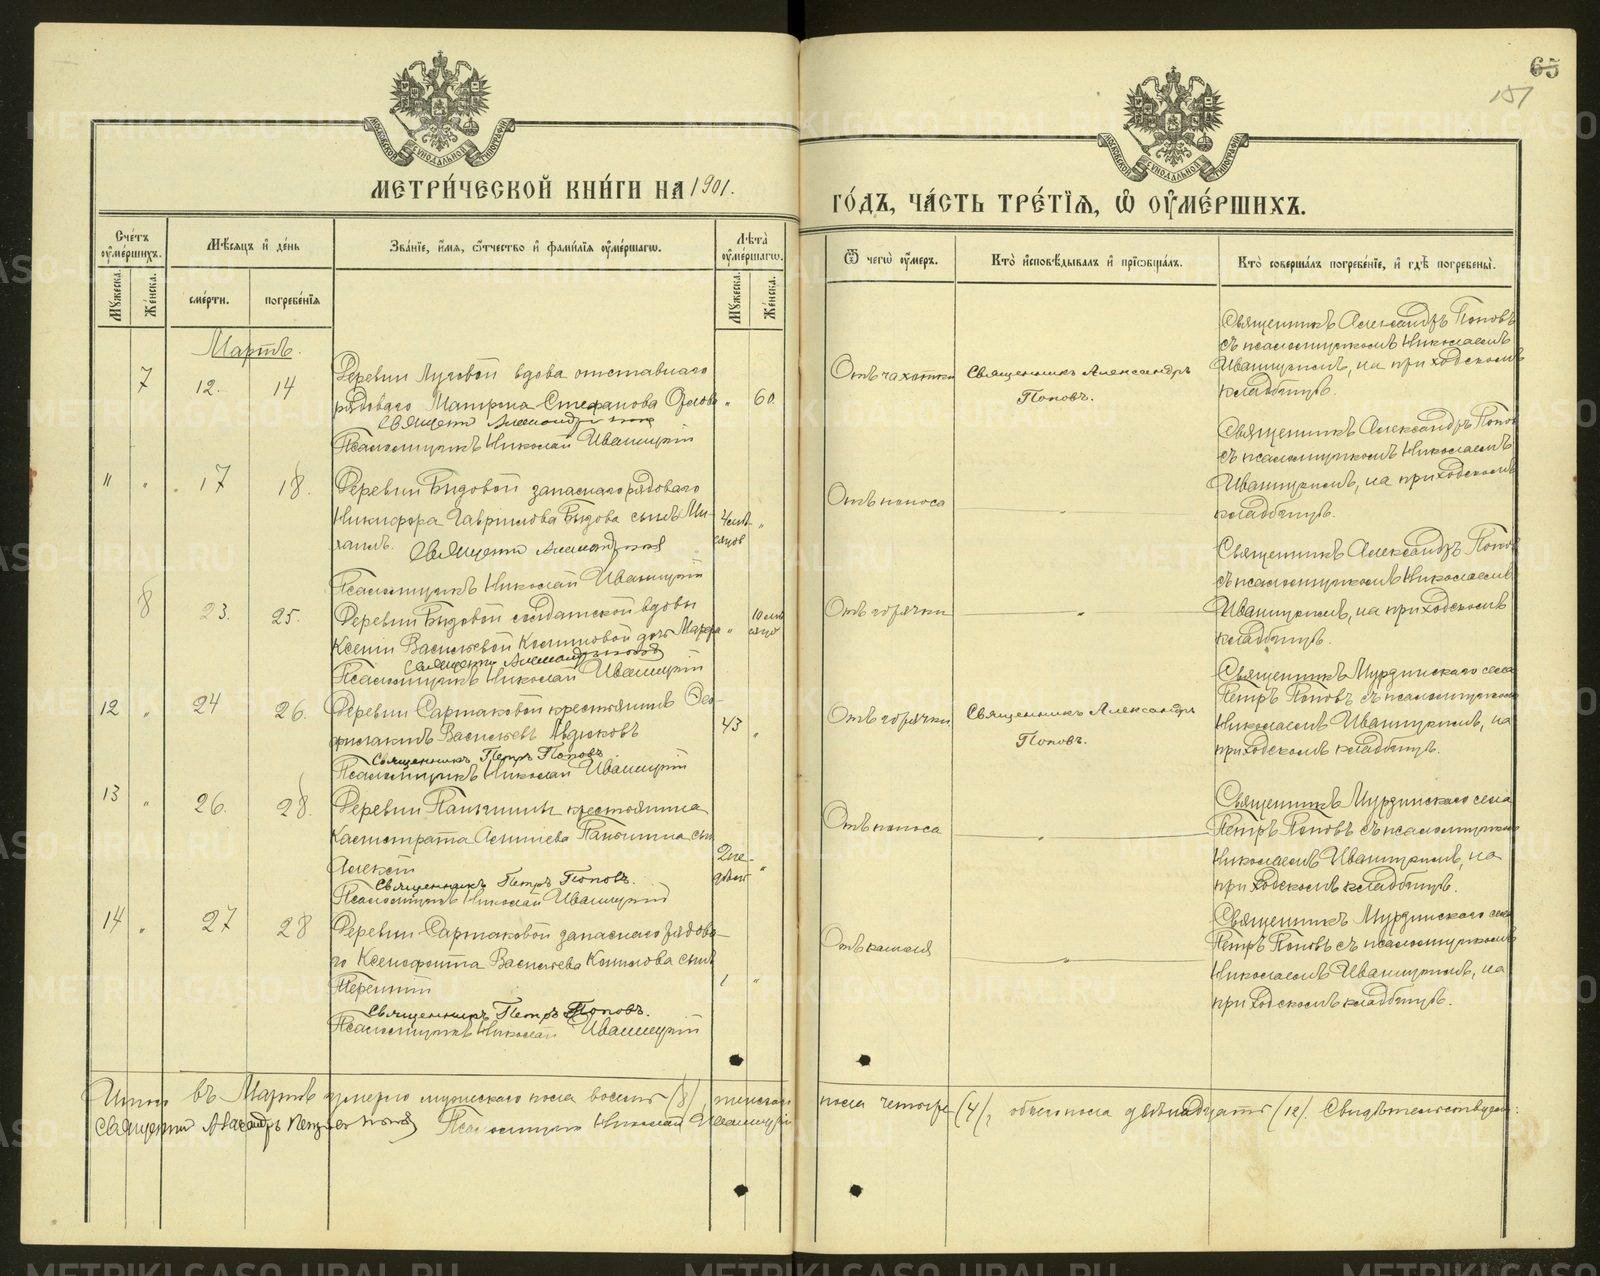 65
151
МОСКОВСКОЙ СѴНОДАЛЬНОЙ ТИПОГРАФІИ
МОСКОВСКОЙ СѴНОДАЛЬНОЙ ТИПОГРАФІИ
МЕТРИ́ЧЕСКОЙ КНИ́ГИ НА 1901.
ГО́ДЪ, ЧА́СТЬ ТРЕ́ТІѦ, Ѡ҆ ОУ҆МЕ́РШИХЪ.
Сче́тъ оу҆ме́ршихъ.
Мꙋжеска.
Же́нска.
Мѣ́сяцъ и҆ де́нь
сме́рти.
погребе́нїя
Зва́нїе, и҆́мя, ѻ҆́тчество и҆ фами́лїя оу҆ме́ршагѡ.
Лѣ́та оу҆ме́ршагѡ.
Мꙋжеска.
Же́нска.
Ѿ чегѡ̀ оу҆́меръ.
Кто̀ и҆сповѣ́дывалъ и҆ прїѡбща́лъ.
Кто̀ соверша́лъ погребе́нїе, и҆ гдѣ̀ погребены̀.
Мартъ.
7 12. 14
Деревни Луговой вдова отставнаго
рядоваго Матрона Стефанова Орлова " 60.
Священни Александръ Поповъ
Псаломщикъ Николай Иваницкій
Отъ чахотки
Священникъ Александръ
Поповъ.
Священникъ Александръ Поповъ
съ псаломщикомъ Николаемъ
Иваницкимъ, на приходскомъ
кладбищѣ.
11 " 17 18.
Деревни Быдовой запаснаго рядоваго
Никифора Гаврилова Быдова сынъ Ми-
хаилъ. 4 мѣ- "
сяцов
Священни Александръ Поповъ
Псаломщикъ Николай Иваницкій
Отъ поноса
"
Священникъ Александръ Поповъ
съ псаломщикомъ Николаемъ
Иваницкимъ, на приходскомъ
кладбищѣ.
8 23. 25.
Деревни Быдовой солдатской вдовы
Ксеніи Васильевой дочь " 10 мѣ
сяцов
Священни Александръ Поповъ
Псаломщикъ Николай Иваницкій
Отъ горячки
"
Священникъ Александръ Поповъ
съ псаломщикомъ Николаемъ
Иваницкимъ, на приходскомъ
кладбищѣ.
12 " 24 26.
Деревни Сартаковой крестьянинъ Ѳео-
Васильевъ Авдюковъ 43 "
Священникъ Петръ Поповъ.
Псаломщикъ Николай Иваницкій
Отъ горячки
Священникъ Александръ
Поповъ.
Священникъ Мурзинскаго села
Петръ Поповъ съ псаломщикомъ
Николаемъ Иваницкимъ, на
приходскомъ кладбищѣ.
13 " 26. 28.
Деревни крестьянина
сынъ
Алексѣй 2 не- "
дѣль
Священникъ Петръ Поповъ.
Псаломщикъ Николай Иваницкій
Отъ поноса
"
Священникъ Мурзинскаго села
Петръ Поповъ съ псаломщикомъ
Николаемъ Иваницкимъ, на
приходскомъ кладбищѣ.
14 " 27 28
Деревни Сартаковой запаснаго рядова-
го Ксенофонта Васильева Копылова сынъ
Терентій 1 "
Священникъ Петръ Поповъ.
Псаломщикъ Николай Иваницкій
Отъ кашля
"
Священникъ Мурзинскаго села
Петръ Поповъ съ псаломщикомъ
Николаемъ Иваницкимъ, на
приходскомъ кладбищѣ.
Итого въ Мартѣ умерло мужескаго пола восемь (8), женскаго пола четыре (4), обоего пола двѣнадцать (12). Свидѣтельствуемъ:
Священни Александръ Поповъ Псаломщикъ Николай Иваницкій
METRIKI.GASO-URAL.RU